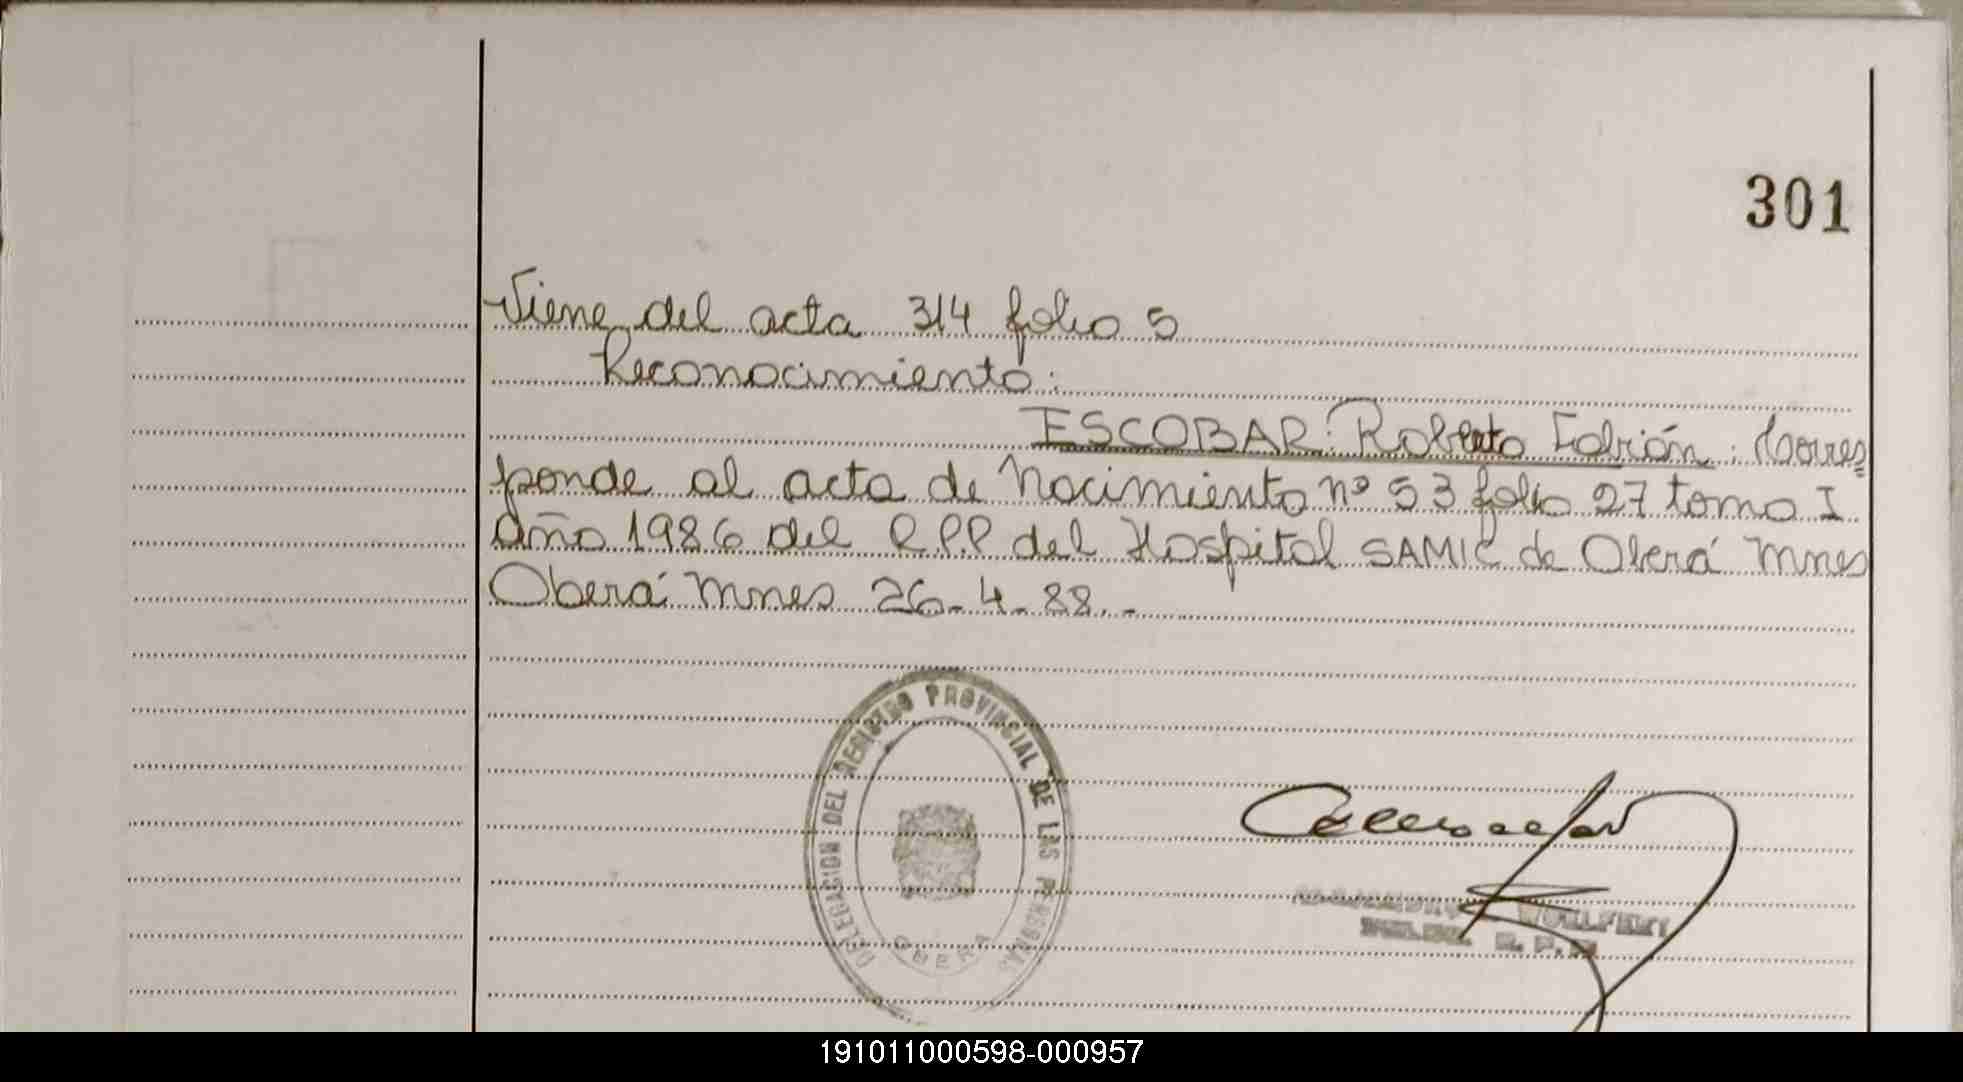 301
Viene del acta 314 folio 5
Reconocimiento:
ESCOBAR: Roberto Fabián: Corres=
ponde al acta de Nacimiento nº 53 folio 27 tomo I
Año 1986 del R.P.P del Hospital SAMIC de Oberá Mnes
Oberá Mnes 26-4-88.-
DELEGACION DEL REGISTRO PROVINCIAL DE LAS PERSONAS
OBERA
R. P. P.
191011000598-000957